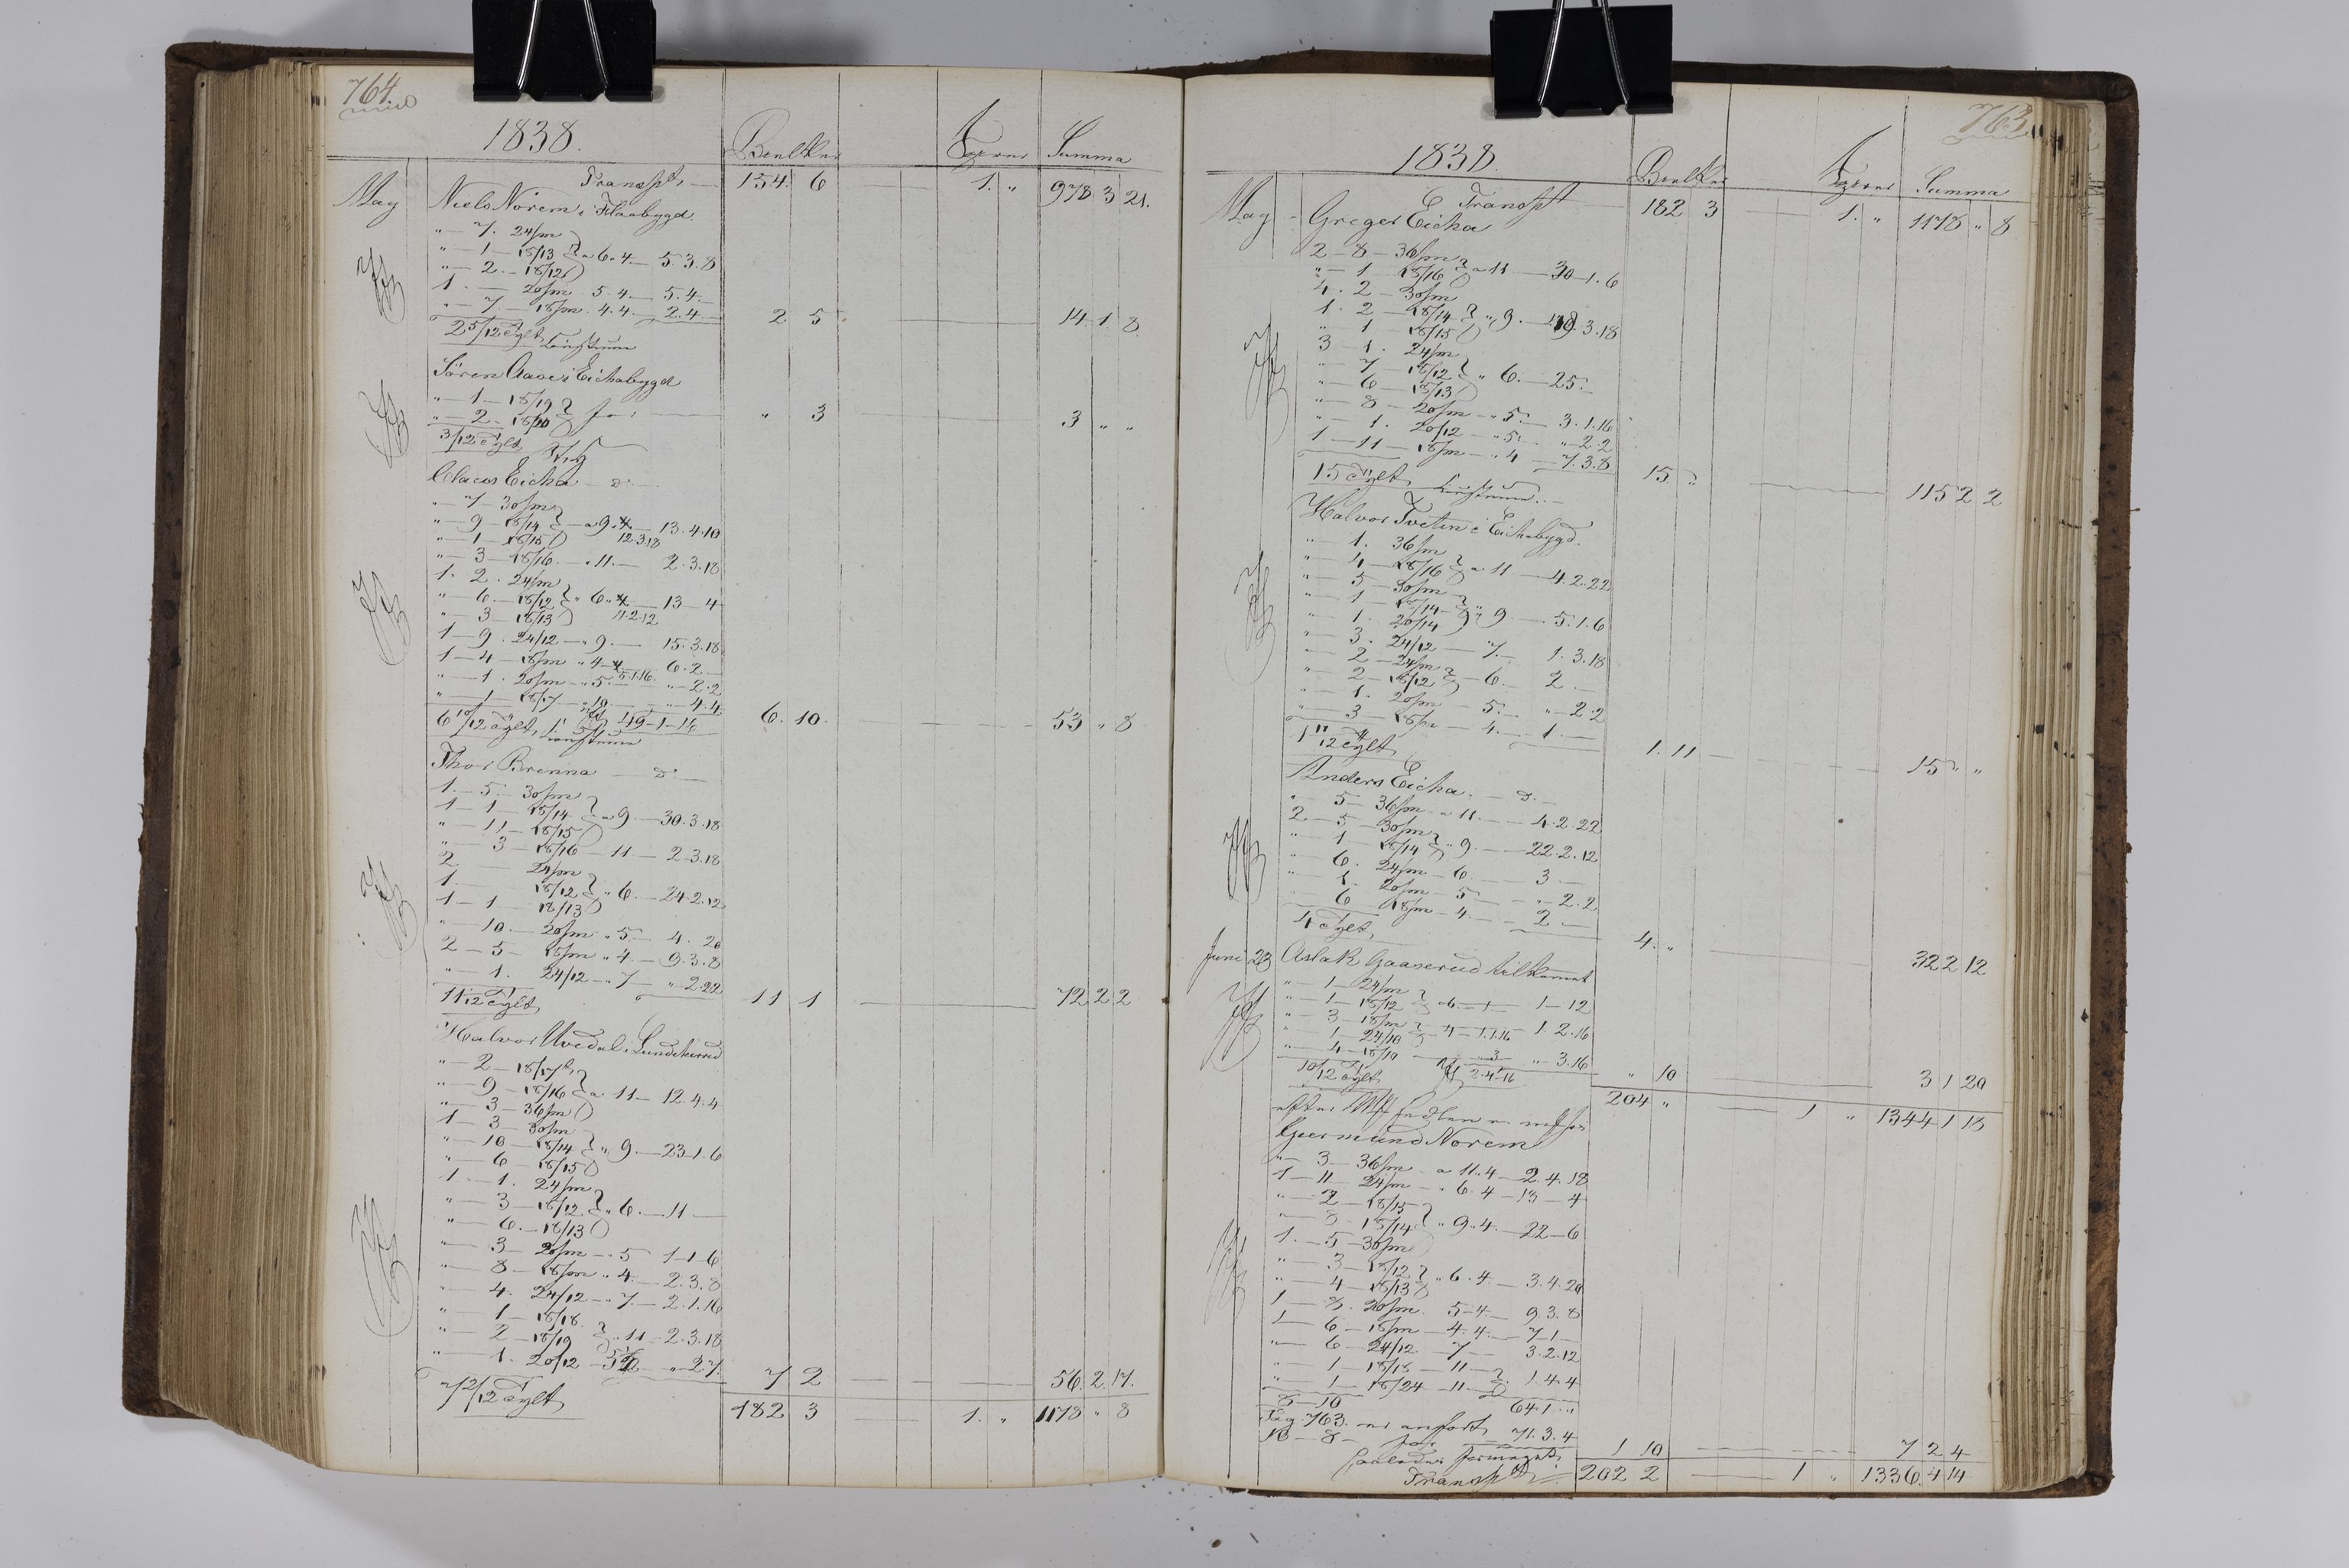 764
1838.
Bielker Summa
Transpt. 154. 6 1. " 978 3 21.
May Niels Norem i Flaabygd.
" 7. 24/m
" 1 - 18/13 } a 6. 4. 5. 3. 8
" 2. - 18/12
1. — 20/m 5. 4. 5. 4.
" 7. 18/m. 4. 4. 2. 4.
2 5/12 Tylt 2 5 14. 1. 8.
Sören Aase i Eichabygd
" 1 - 18/19
" 2 - 18/20 } " 3 3 " "
3/12 Tylt
Clacus Eicha — d°
" 7 - 30/m
" 9 - 18/14 } a 9. 4. 13. 4. 10
" 1 - 18/15 12. 3. 18
" 3 - 18/16 " 11. 2. 3. 18
1. 2. 24/m
" 6. - 18/12 } " 6. 4 13 - 4
" 3 - 18/13 11. 2. 12
1 - 9. 24/12 " 9. 15. 3. 18
1 - 4 - 18/m " 4 - 4 6. 2
" 1. 20/m " 5. 5. 1. 16. " 2. 2
" 1 - 18/17 " 10 " 4. 4
6 10/12 Tylt, 49 - 1 - 16 6. 10. 53 " 8
Thor Brenna — d°
1. - 5 - 30/m
1 - 1 - 18/14 } a 9 — 30. 3. 18
" 11 - 18/15
" 3 - 18/16 — 11 — 2. 3. 18
2 24/m
1. 18/12 } " 6. — 24. 2. 12
1 - 1 18/13
" 10. - 20/m " 5 — 4. 20
2 - 5 - 18/m " 4. — 9. 3. 8
" 1. 24/12 " 7 — " 2. 22
11 1/12 Tylt 11 1 72 2 2
Halvor Uvedal i Lundeherred
" 2 - 18/17
" 9 - 18/16 } a 11 — 12. 4. 4
" 3 - 36/m
1 - 3 - 30/m
" 10 - 18/14 } " 9. — 23. 1. 6
" 6 - 18/15
1 - 1. 24/m
" 3 - 18/12 } " 6. — 11 —
" 6. - 18/13
" 3 - 20/m " 5 1 - 1 - 6
" 8 - 18/m " 4. — 2. 3. 8
" 4. 24/12 " 7. — 2. 1. 16
" 1 - 18/18.
" 2 - 18/19 } " 11 — 2. 3. 18
" 1. 20/12 " 2. 7.
7 2/12 Tylt 7 2 56. 2. 17.
182 3 1. " 1178 " 8
763
1838.
Bielker Summa
Transpt 182 3 1. " 1178 " 8
May Greger Eicha
2 - 8 - 36/m
" 1 - 18/16 } a 11 — 30 - 1. 6
4. 2 - 30/m
1. 2 - 18/14 } " 9. — 3. 18
" 1 - 18/15
3 - 1. 24/m
" 7 - 18/12 } " 6. — 25.
" 6 - 18/13
" 8 - 20/m " 5. 3. 1. 16
" 1. 20/12 " 5. " 2. 2
1 - 11 - 18/m " 4 7. 3. 8
15 Tylt 15 " 115 2 2
Halvor Tveten i Eichabygd.
" 1. 36/m
" 4 - 18/16 } a 11 — 4. 2. 22
" 5 - 30/m
" 1 - 18/14 } " 9. — 5. 1. 6
" 1. 20/14
" 3. 24/12 — 7. 1. 3. 18
" 2 - 24/m
" 2 - 18/12 } 6. — 2. —
" 1. 20/m — 5. " 2. 2
" 3 - 18/m — 4. — 1. —
1 11/12 Tylt 1. 11 15 " "
Anders Eicha. — d°
" 5 - 36/m " 11. — 4. 2. 22
2 - 5 - 30/m
" 1 - 18/14 } " 9. — 22. 2. 12
" 6. 24/m — 6. 3 —
" 1. 20/m — 5 " 2. 2
" 6 18/m — 4. 2 —
4 Tylt, 4. " 32 2 12
Juni 23 Aslak Gaaserud tilkommet
" 1 - 24/m
" 1 - 18/12 } 6 — 1 1 - 12
" 3 - 18/m
" 1 - 24/10 } 4 - 1. 1. 16 1. 2. 16
" 4 - 18/10 3 " 3. 16
10/12 Tylt 2. 4. 16 " 10 3 1 20
204 " 1 " 1344 1 18
Giermund Norem
" 3 - 36/m a 11. 4 — 2. 4. 18
1 - 11 - 24/m " 6. 4 — 13 - 4
" 2 - 18/15
" 8 - 18/14 } " 9. 4. — 22 - 6
1. - 5 - 30/m
" 3 - 18/12
" 4 - 18/13 } " 6. 4. — 3. 4. 20
1 - 8. 20/m. 5 - 4. 9. 3. 8
1 - 6 - 18/m — 4. 4. — 7 - 1 —
" 6 - 24/12 — 7 — 3. 2. 12
" 1 - 18/18 — 11
" 1 - 18/24 — 11 } 1. 4. 4
8 - 10 64 1. "
Pag 763. er anfört 71. 3. 4
10 - 8 - for 1 10 7 2 4
Transpt 202 2 1 " 1336. 4 14